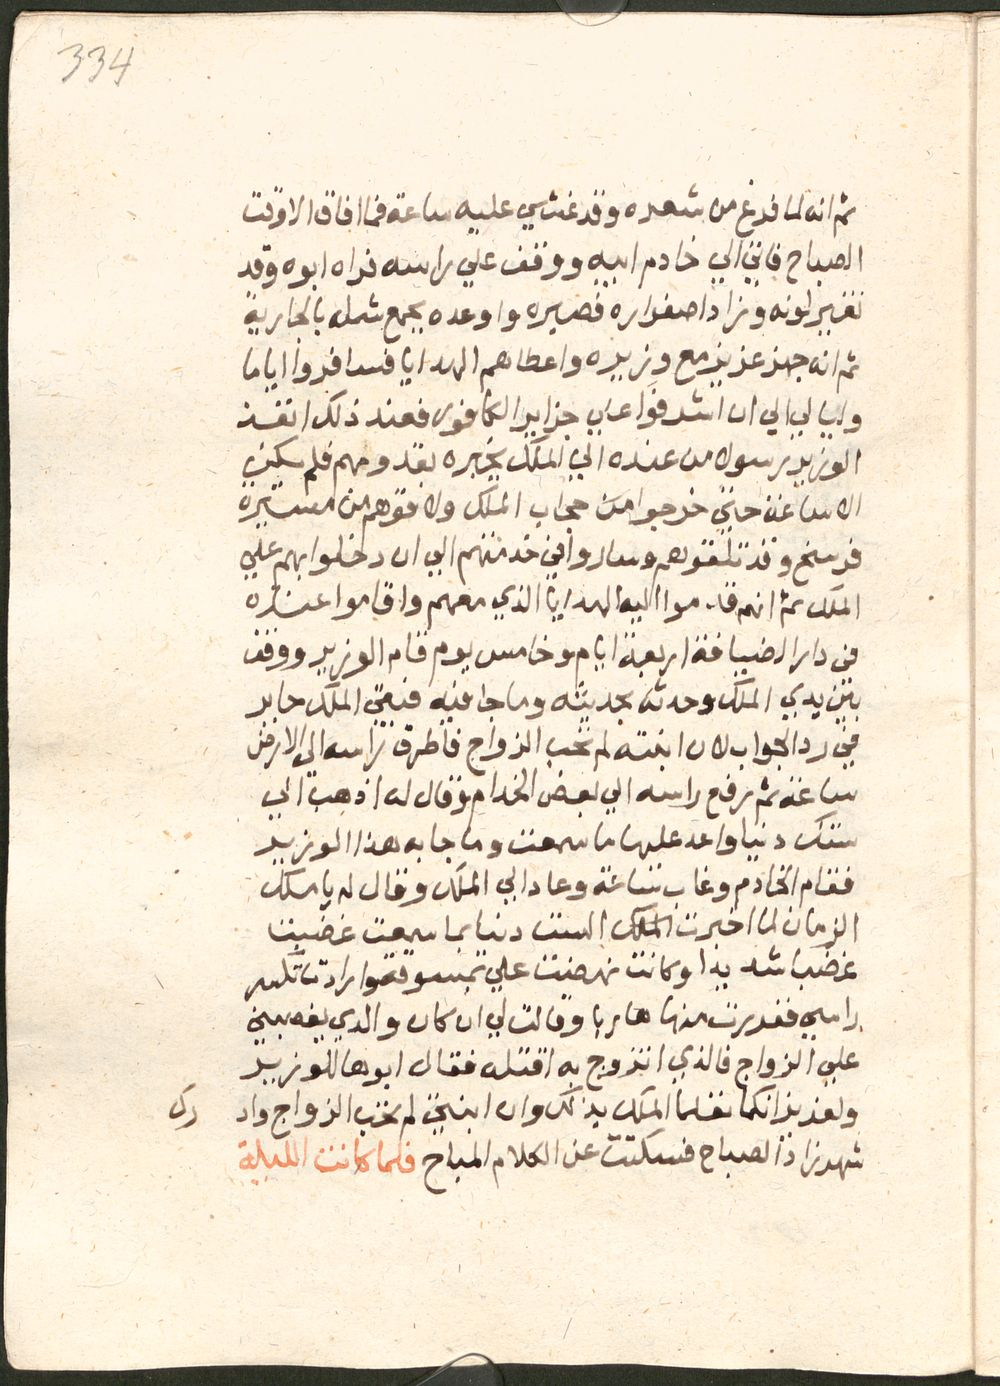 334
ثم انه لما فرغ من شعره وقد غشي عليه ساعة فما افاق الا وقت
الصباح فاتي الي خادم ابيه ووقف علي راسه فراه ابوه وقد
تغير لونه وزاد اصفراره فصبره واوعده بجمع شمله بالجارية
ثم انه جهز عزيز مع وزيره واعطاهم الهدايا فسافروا اياما
وليالي الي ان اشرفوا علي جزاير الكافور فعند ذلك انفذ
الوزير رسولا من عنده الي الملك يخبره بقدومهم فلم يكن
الا ساعة حتي خرجوا من حجاب الملك ولاقوهم من مسيرة
فرسخ وقد تلقوهم وساروا في خدمتهم الي ان دخلوا بهم علي
الملك ثم انهم قدموا اليه الهدايا الذي معهم واقاموا عنده
في دار الضيافة اربعة ايام وخامس يوم قام الوزير ووقف
بين يدي الملك وحدثه بحديثه وما جا فيه فبقي الملك حاير
في رد الجواب لان ابنته لم تحب الزواج فاطرق راسه الي الارض
ساعة ثم رفع راسه الي بعض الخدام وقال له اذهب الي
ستك دنيا واعد عليها ما سمعت وما جا به هذا الوزير
فقام الخادم وغاب ساعة وعاد الي الملك وقال له يا ملك
الزمان لما اخبرت الملك الست دنيا بما سمعت غضبت
غضبا شديدا وكانت نهضت علي بمسوقة وارادت تكسر
راسي ففريت منها هاربا وقالت لي ان كان والدي يغصبني
علي الزواج فالذي اتزوج به اقتله فقال ابوها للوزير
ولعزيز انكما تعلما الملك بذلك وان ابنتي لم تحب الزواج واد
رك
شهرزاد الصباح فسكتت عن الكلام المباح فلما كانت الليلة